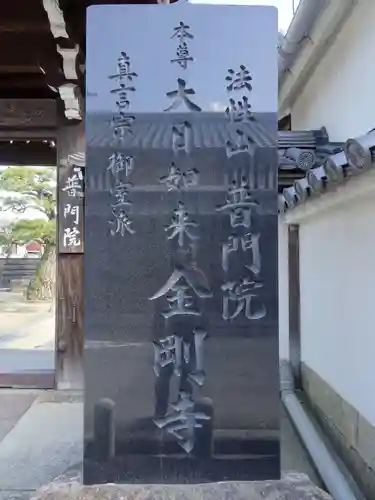 法性山普門院
本尊大日如来金剛寺
真言宗御室派
普門院